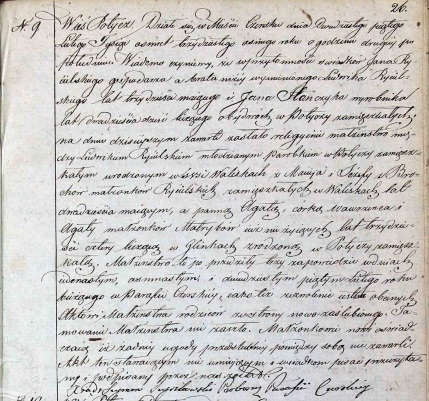 26.
N. 9 Wieś Połycz. Działo się w Mieście Czersku dnia Dwudziestego piątego
Lutego Tysiąc ośmset trzydziestego ósmego roku o godzinie drugiej po
południu. Wiadomo czynimy, że w przytomności świadków Jana
gospodarza a brata niżej wymienionego Ludwika
lat trzydzieści mającego i Jana wyrobnika
lat dwadzieścia dwie liczącego obydwóch w Połyczy zamieszkałych,
na dniu dzisiejszym zawarte zostało religijne małżeństwo mię-
dzy Ludwikiem młodzianem Parobkiem w Połyczy zamiesz-
kałym urodzonym w wsi Waliskach z
małżonków zamieszkałych w Waliskach lat
dwadzieścia mającym, a panną Agatą, córką Wawrzeńca i
Agaty małżonków już nieżyjących lat trzydzie-
ści cztery liczącą w Glinkach zrodzoną w Połyczy zamiesz-
kałą. Małżeństwo to poprzedziły trzy zapowiedzie w dniach
jedenastym, ośmnastym, i dwudziestym piątym Lutego roku
bieżącego w Parafii Czerskiej, jako też zezwolenie ustne obecnych
Aktowi Małżeństwa rodziców ze strony nowo zaślubionego. Ta-
mowanie Małżeństwa nie zaszło. Małżonkowie nowi oświad-
czają iż żadnej ugody przedślubnej pomiędzy sobą nie zawarli.
Akt ten stawającym nie umiejącym i świadkom pisać przeczyta-
ny i podpisany przez nas został.
Xiądz Proboszcz Parafii Czerskiej